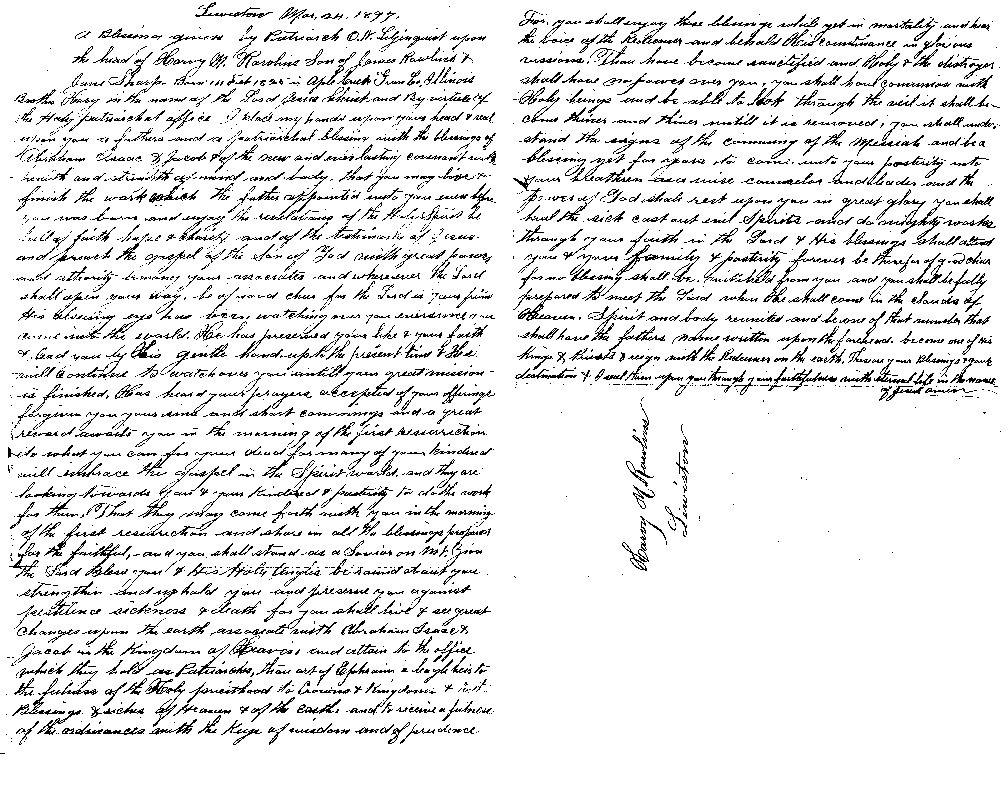 Lewiston Mar, 24, 1897.
A Blessing given by Patriarch O.N. Liljenquist upon
the head of Harvey M. Rawlins Son of James Rawlins &
Jane Sharp. Born 14 Feb 1825 in Aple Creek Green Co, Illinois
Brother Harvey in the name of the Lord Jesus Christ and By virtue of
the Holy patriarchal office I place my hands upon your head & seal
upon you a fathers and a patriarchal blessing with the blessings of
Abraham Isaac & Jacob & of the new and everlasting covenant with
health and strength of mind and body, that you may live &
finish the work which the father appointed unto you even before
you was born and enjoy the of the Holy Spirit be
full of faith hope & charity and of the testimony of Jesus
and preach the gospel of the Son of God with great power
and athority among your associates and wherever the Lord
shall open your way. be of good cheer for the Lord is your friend
His allseeing eye has been watching over you ever since you
came into the world. He has preserved your life & your faith
& lead you by his gentle hand up to the present time & He
will continue to watch over you untill your great mission
is finished. Has heard your prayers accepted of your offerings
forgiven you your sins and short commings and a great
reward awaits you in the morning of the first resurrection
do what you can for your dead for many of your kindred
will embrace the gospel in the Spirit world and they are
looking towards you & your kindred & pastirity to do the work
for them, That they may come forth with you in the morning
of the first resurrection and share in all the blessings prepared
for the faithful, and you shall stand as a Savior on Mt. Zion
the Lord bless you & His Holy Angles be round about you
strengthen and uphold you and preserve you against
pestilence sickness & death for you shall live & see great
changes upon the earth associate with Abraham Isaac &
Jacob in the Kingdom of Heaven and attain to the office
which they hold as Patriarchs, thou art of Ephraim a legle heir to
the fulness of the Holy priesthood to Crowns & Kingdoms &
Blessings & riches of Heaven & of the earth and to receive a fulness
of the ordinances with the Keys of wisdom and of prudence
For, you shall enjoy these blessings while yet in mortality and hear
the voice of the Redeemer and behold His countinance in glorious
vissions. Thou have become sanctified and Holy & the destroyer
shall have no power over you, you shall have communion with
Holy beings and be able to look through the veil it shall be-
come thiner and thiner untill it is removed, you shall under-
stand the signs of the comming of the Messiah and be a
blessing yet for years to come unto your postirity unto
your breathren as a wise counselor and leader and the
power of God shall rest upon you in great glory you shall
heal the sick cast out evil Spirits and do mighty works
through your faith in the Lord & His blessings shall attend
you & your family & postirity forever be therefor of good cheer
for no blessing shall be withheld from you and you shall be fully
prepared to meet the Lord when He shall come in the clouds of
Heaven. Spirit and body reunited and be one of that number that
shall have the fathers name written upon the forehead. become one of his
Kings & Priests & reign with the Redeemer on the earth. These are your Blessings & your
destination & I seal them upon you through your faithfulness with eternal life in the name
of Jesus amen
Harvey M Rawlins
Lewiston